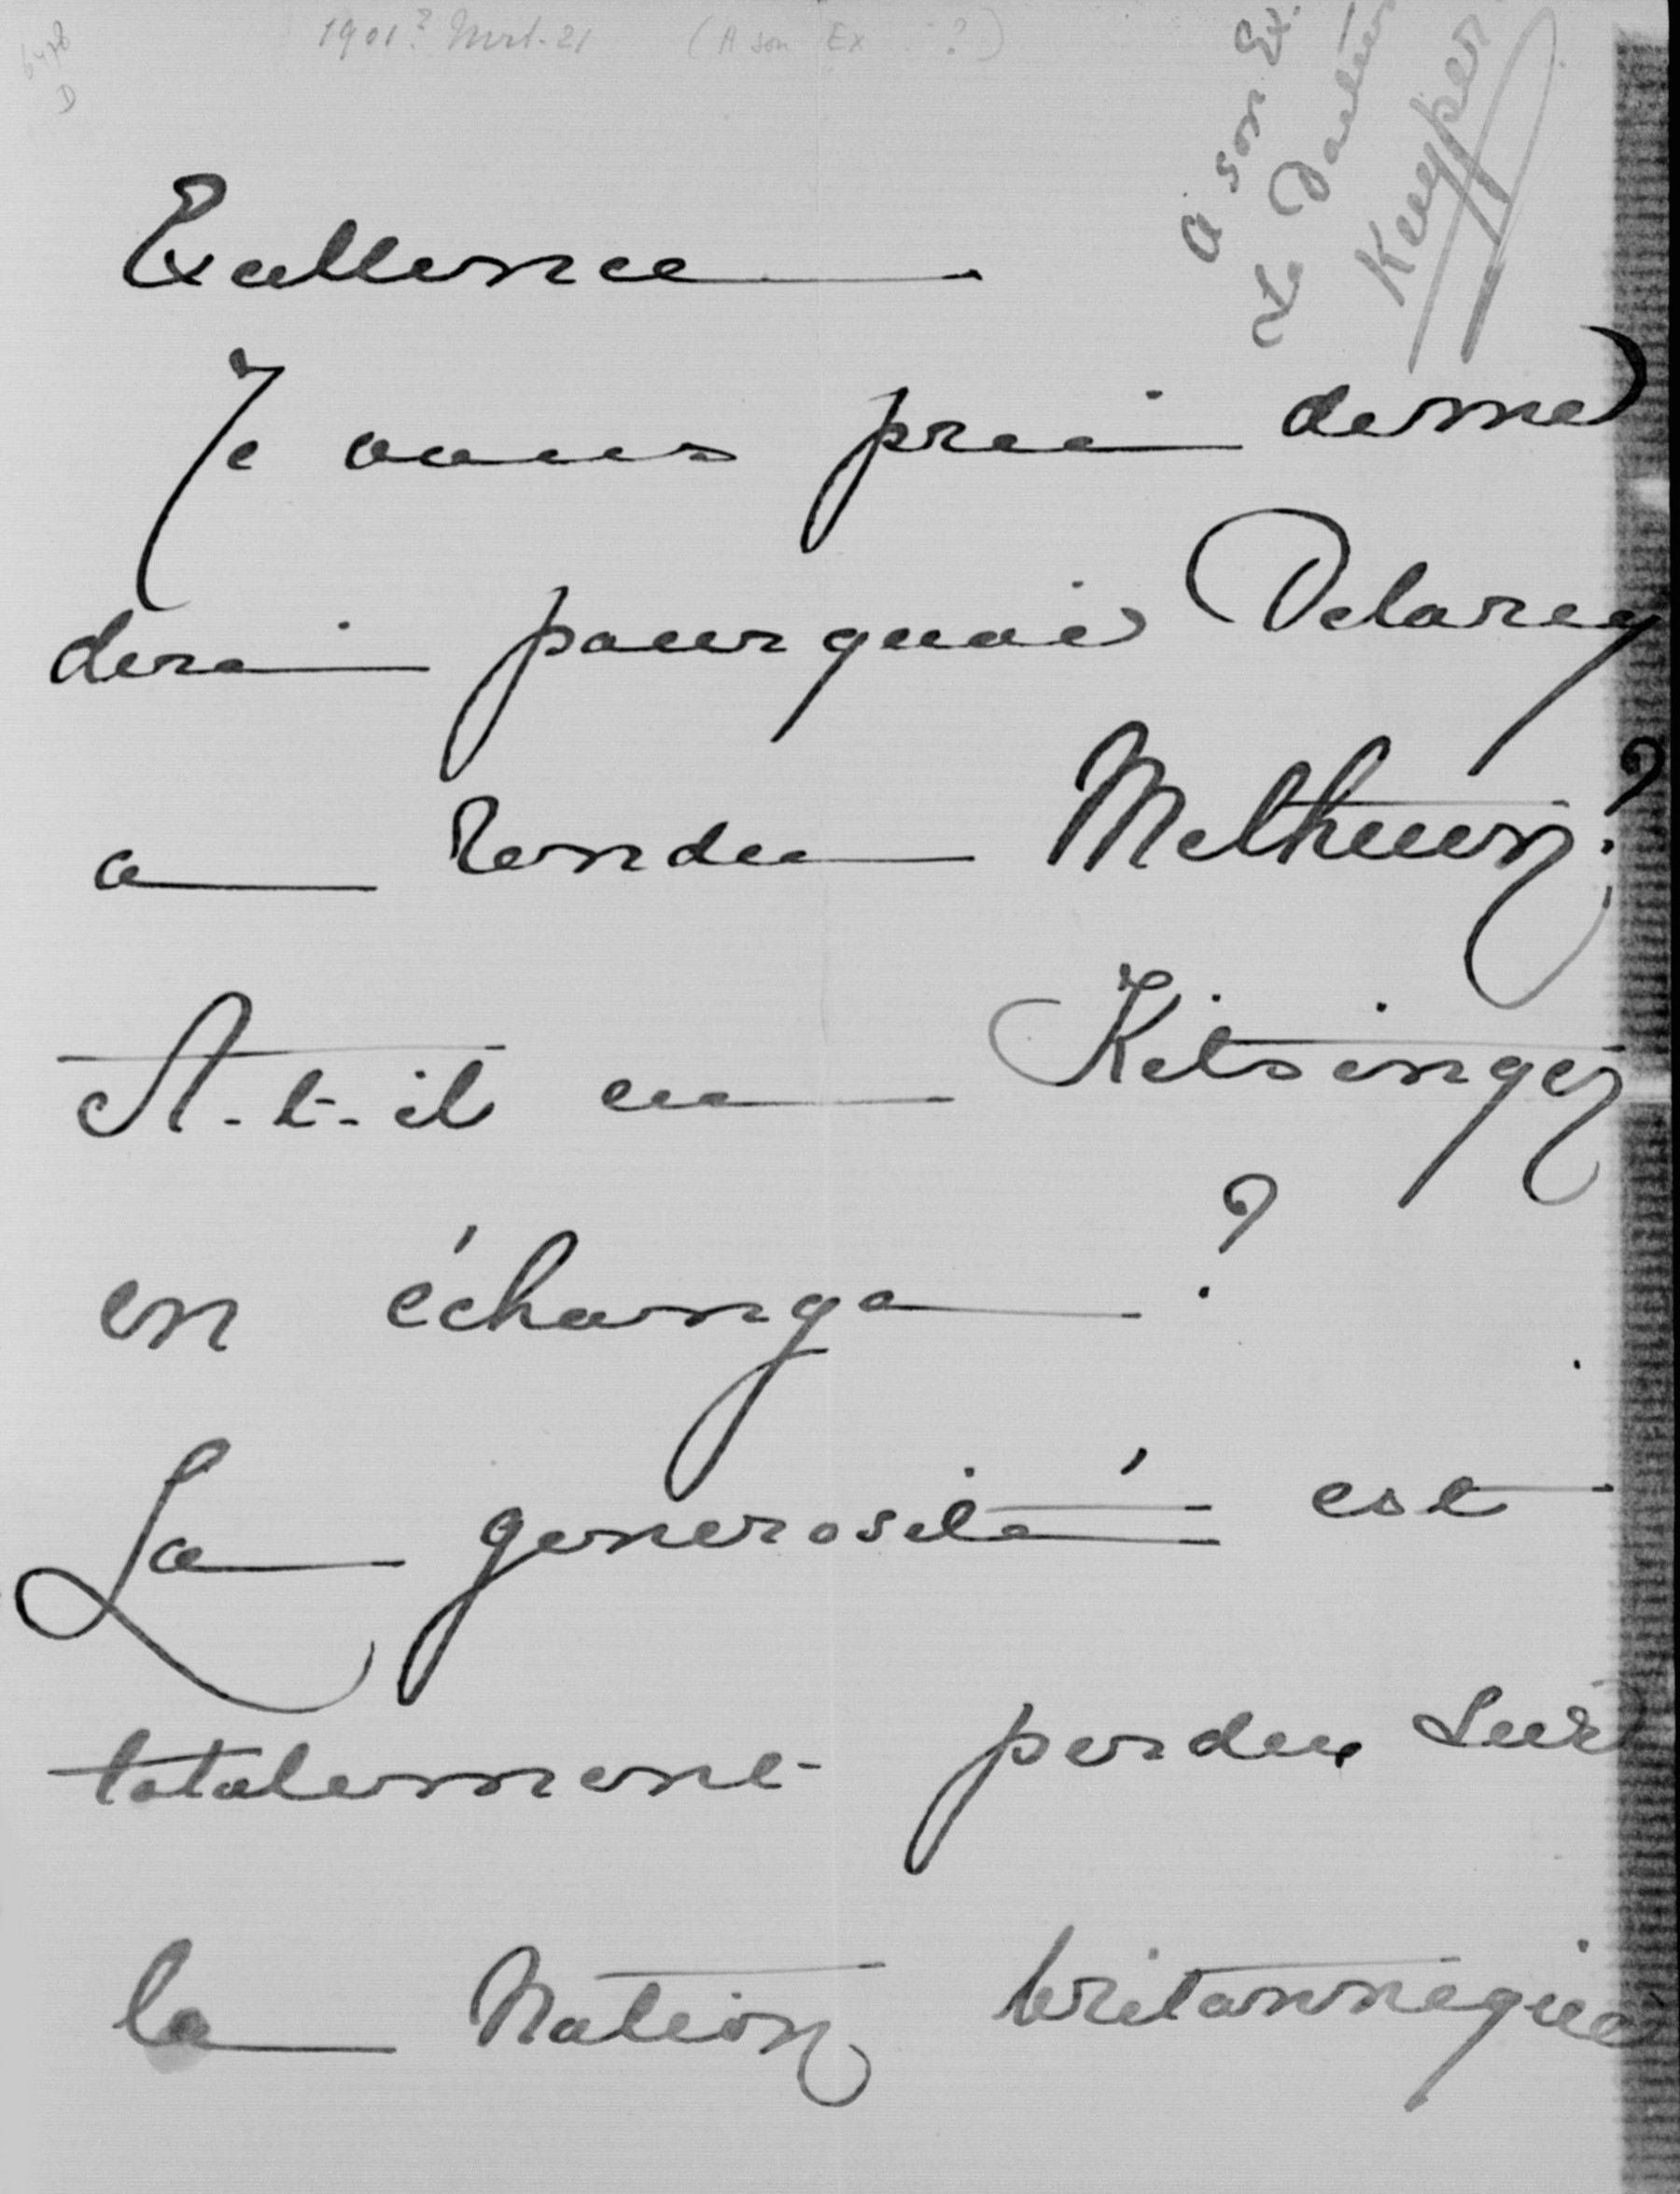 6478
D
1901? Mrt. 21 (A son Ex ?)
A son Ex.
Le Docteur
Kuyper
Excellence
Je vous prie de me
dire pourquoi Delarey
a rendu Methuen?
A-t-il eu Kitsinger
en échange?
La generosité est
totalement perdue sur
la Nation britannique